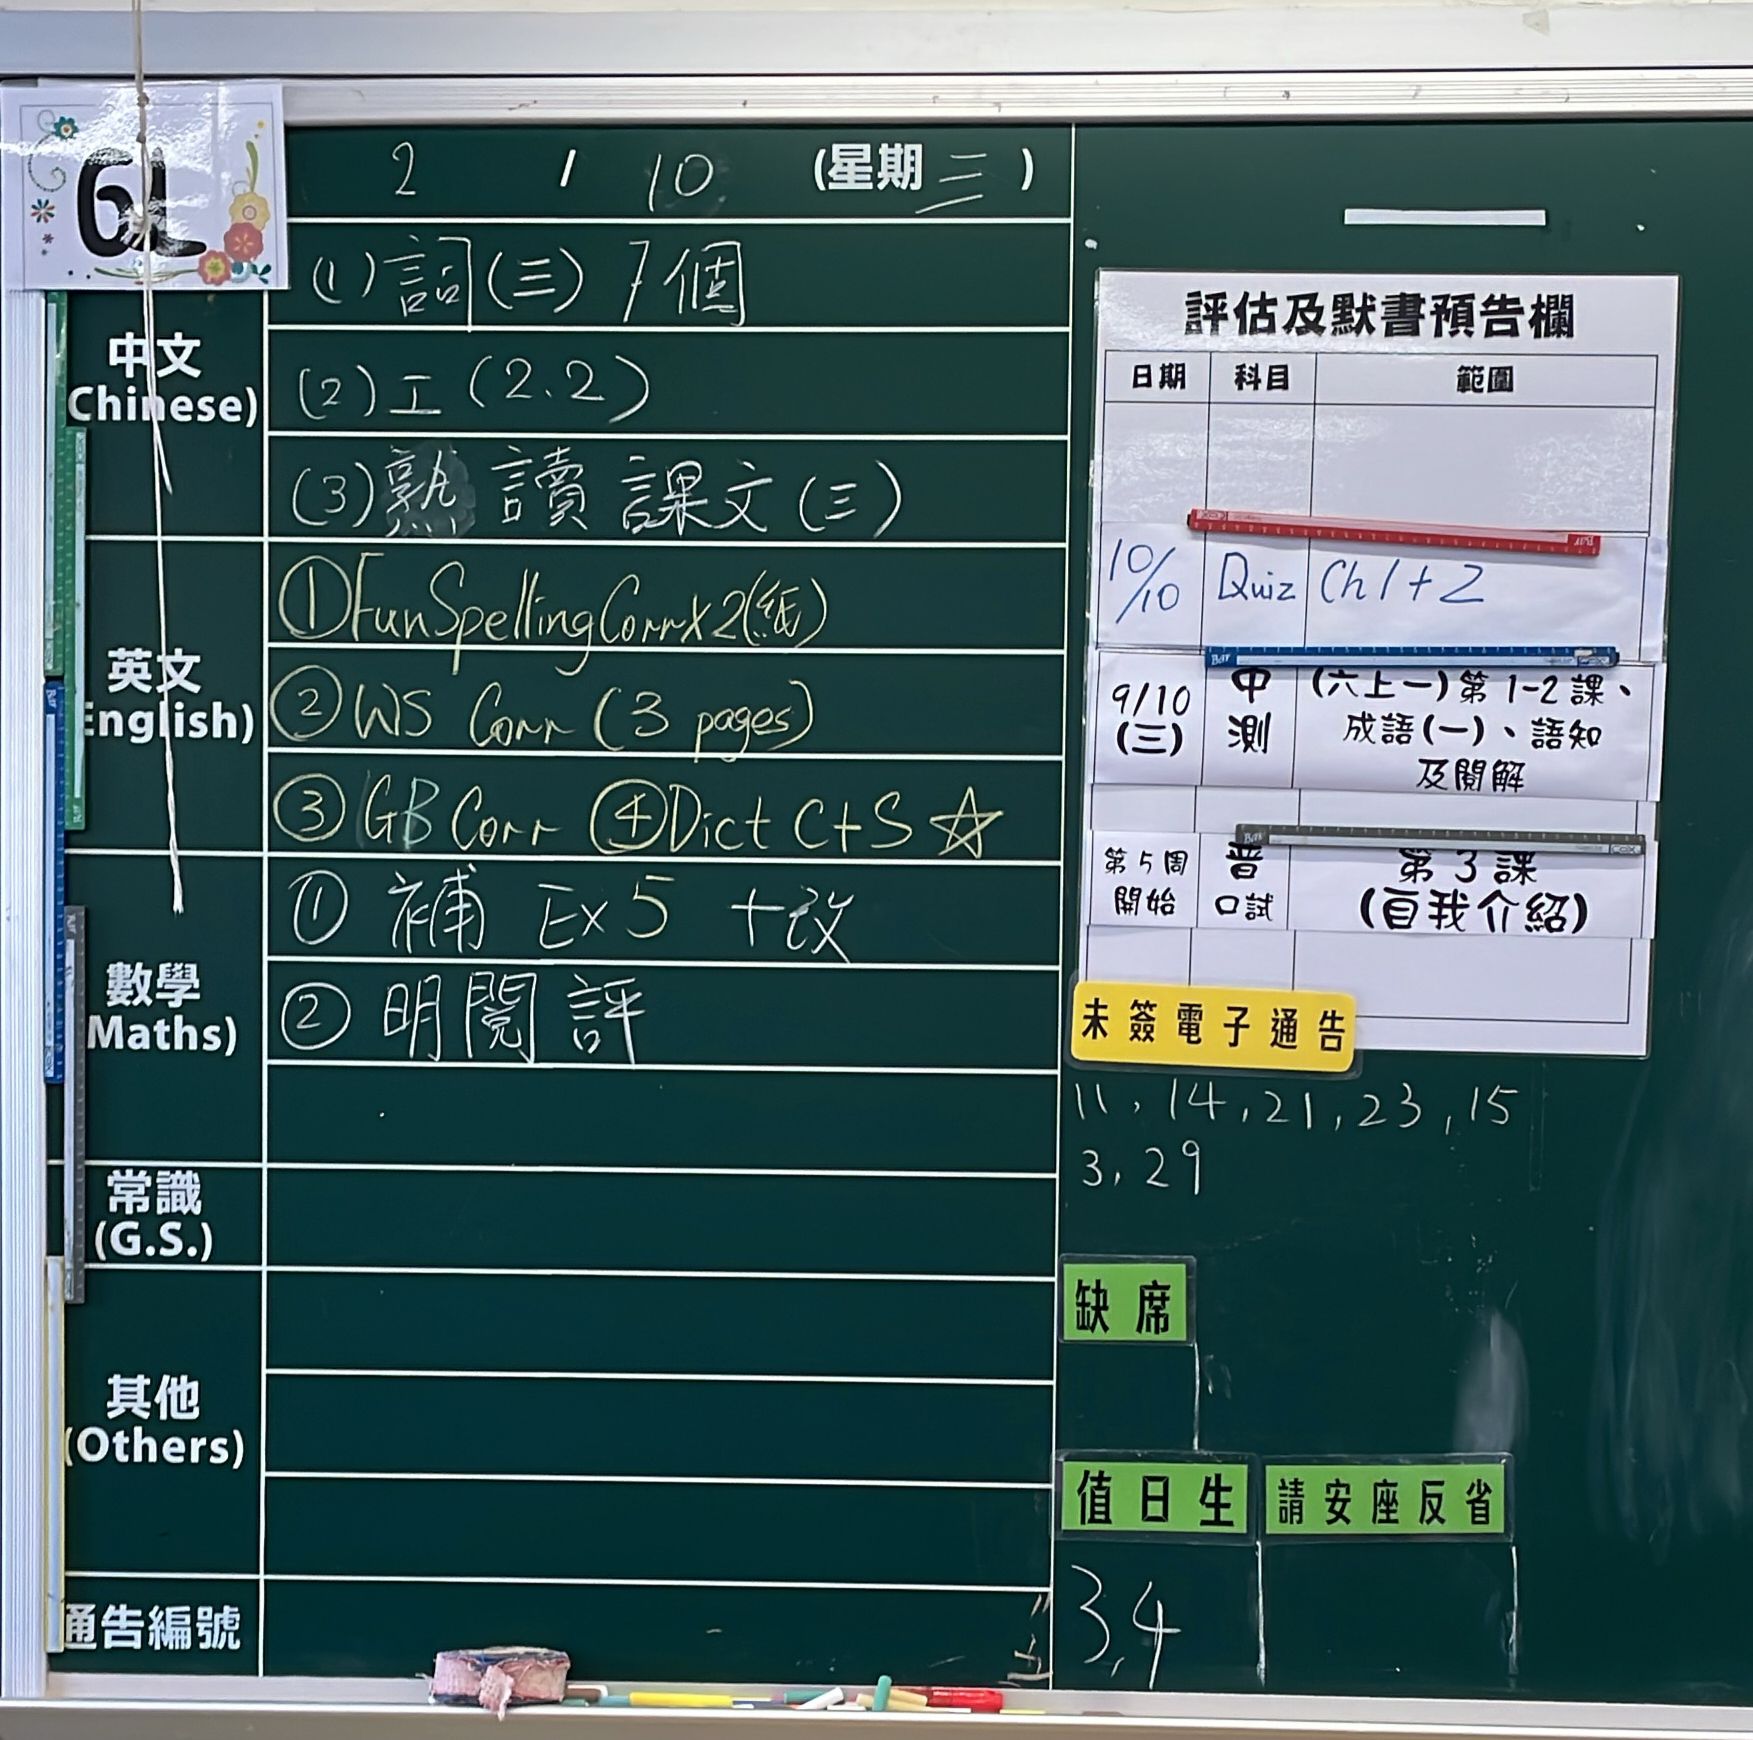 6L
2 / 10 (星期三)
中文
Chinese)
(1) 詞(三) 7個
(2) 工 (2.2)
(3) 熟讀課文(三)
英文
English)
① Fun Spelling Corr x 2 (紙)
② WS Corr (3 pages)
③ GB Corr ④ Dict C+S ☆
數學
Maths)
① 補 Ex 5 +改
② 明閱評
常識
(G.S.)
其他
(Others)
通告編號
評估及默書預告欄
日期 科目 範圍
10/10 Quiz Ch 1 + 2
9/10 (三) 中測 (六上一)第1-2課、成語(一)、語知及閱解
第5周開始 普口試 第3課 (自我介紹)
未簽電子通告
11, 14, 21, 23, 15
3, 29
缺席
值日生 請安座反省
3, 4